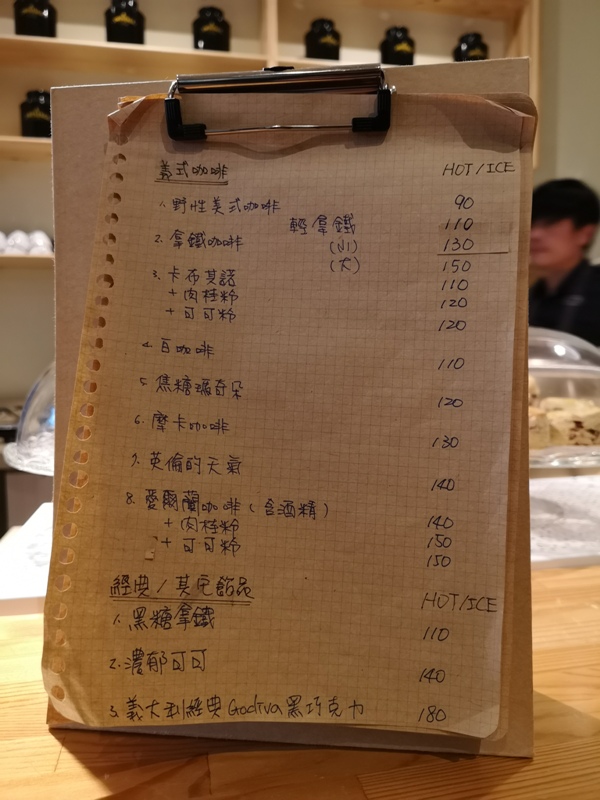 義式咖啡 HOT/ICE
1. 野性美式咖啡 90
輕拿鐵 110
2. 拿鐵咖啡 (小) 130
(大) 150
3. 卡布其諾 110
+ 肉桂粉 120
+ 可可粉 120
4. 白咖啡 110
5. 焦糖瑪奇朵 120
6. 摩卡咖啡 130
7. 英倫的天氣 140
8. 愛爾蘭咖啡 (含酒精) 140
+ 肉桂粉 150
+ 可可粉 150
經典/其它飲品 HOT/ICE
1. 黑糖拿鐵 110
2. 濃郁可可 140
3. 義大利經典Godiva黑巧克力 180